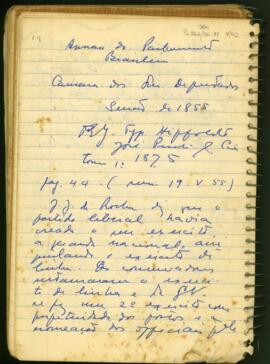 Annaes do Parlamento
Brasileiro
Camara dos Srs Deputados
Sessão de 1855
RJ, Typ. Hippolito
José Pinto & Cia
tomo 1º 1875
pag. 44 - ( 19. V. 55)
J. J. da Rocha diz que o
partido liberal havia
creado o um exercito,
a guarda nacional, am
pulando o exercito de
linha. Os conservadores
o exerci-
to de linha e da G N
se fez um 2º exercito com
perpetuidade dos postos e a
nomeação dos officiaes pelo